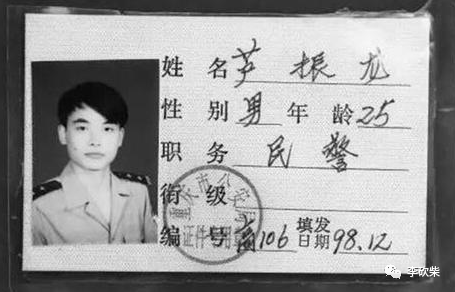 姓 名 芦 振 龙
性 别 男 年 龄 25
职 务 民 警
衔 级
编 号 106 填发日期 98.12
重庆市公安
李砍柴